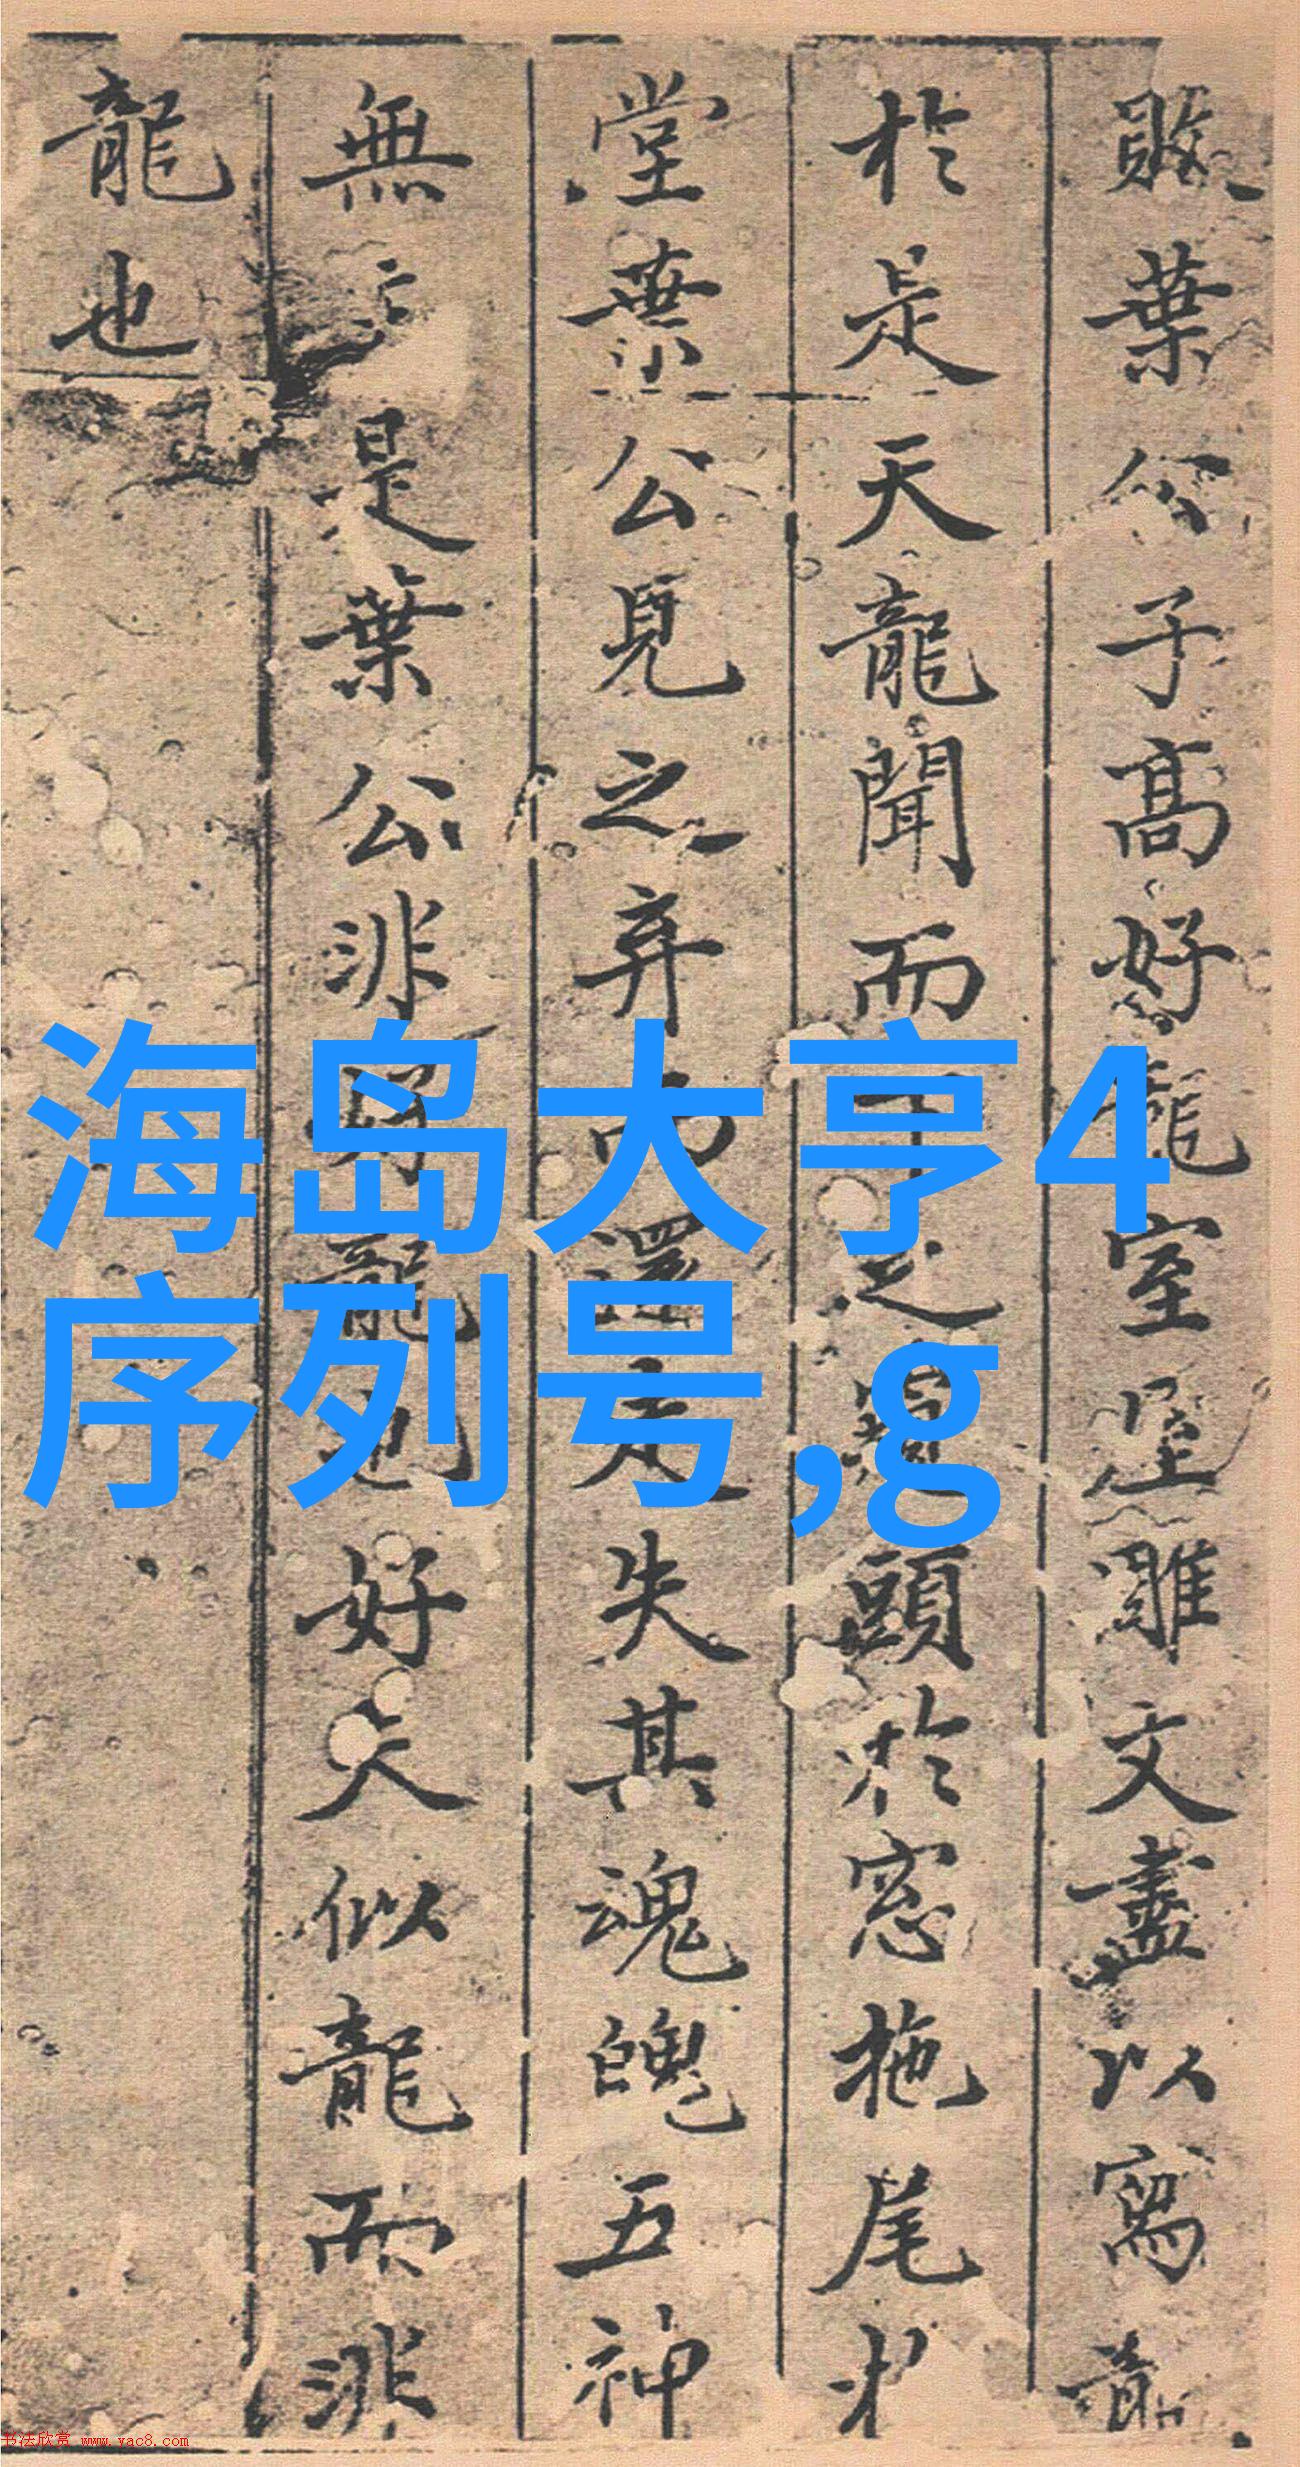 敗葉公子高好龍室屋雕文盡以寫龍
於是天龍聞而下之窺頭於窓拖尾於
堂葉公見之弃而還走失其魂魄五神
無主是葉公非好龍也好夫似龍而非
龍也
海岛大亨4
序列号,g
书法欣赏 www.yac8.com